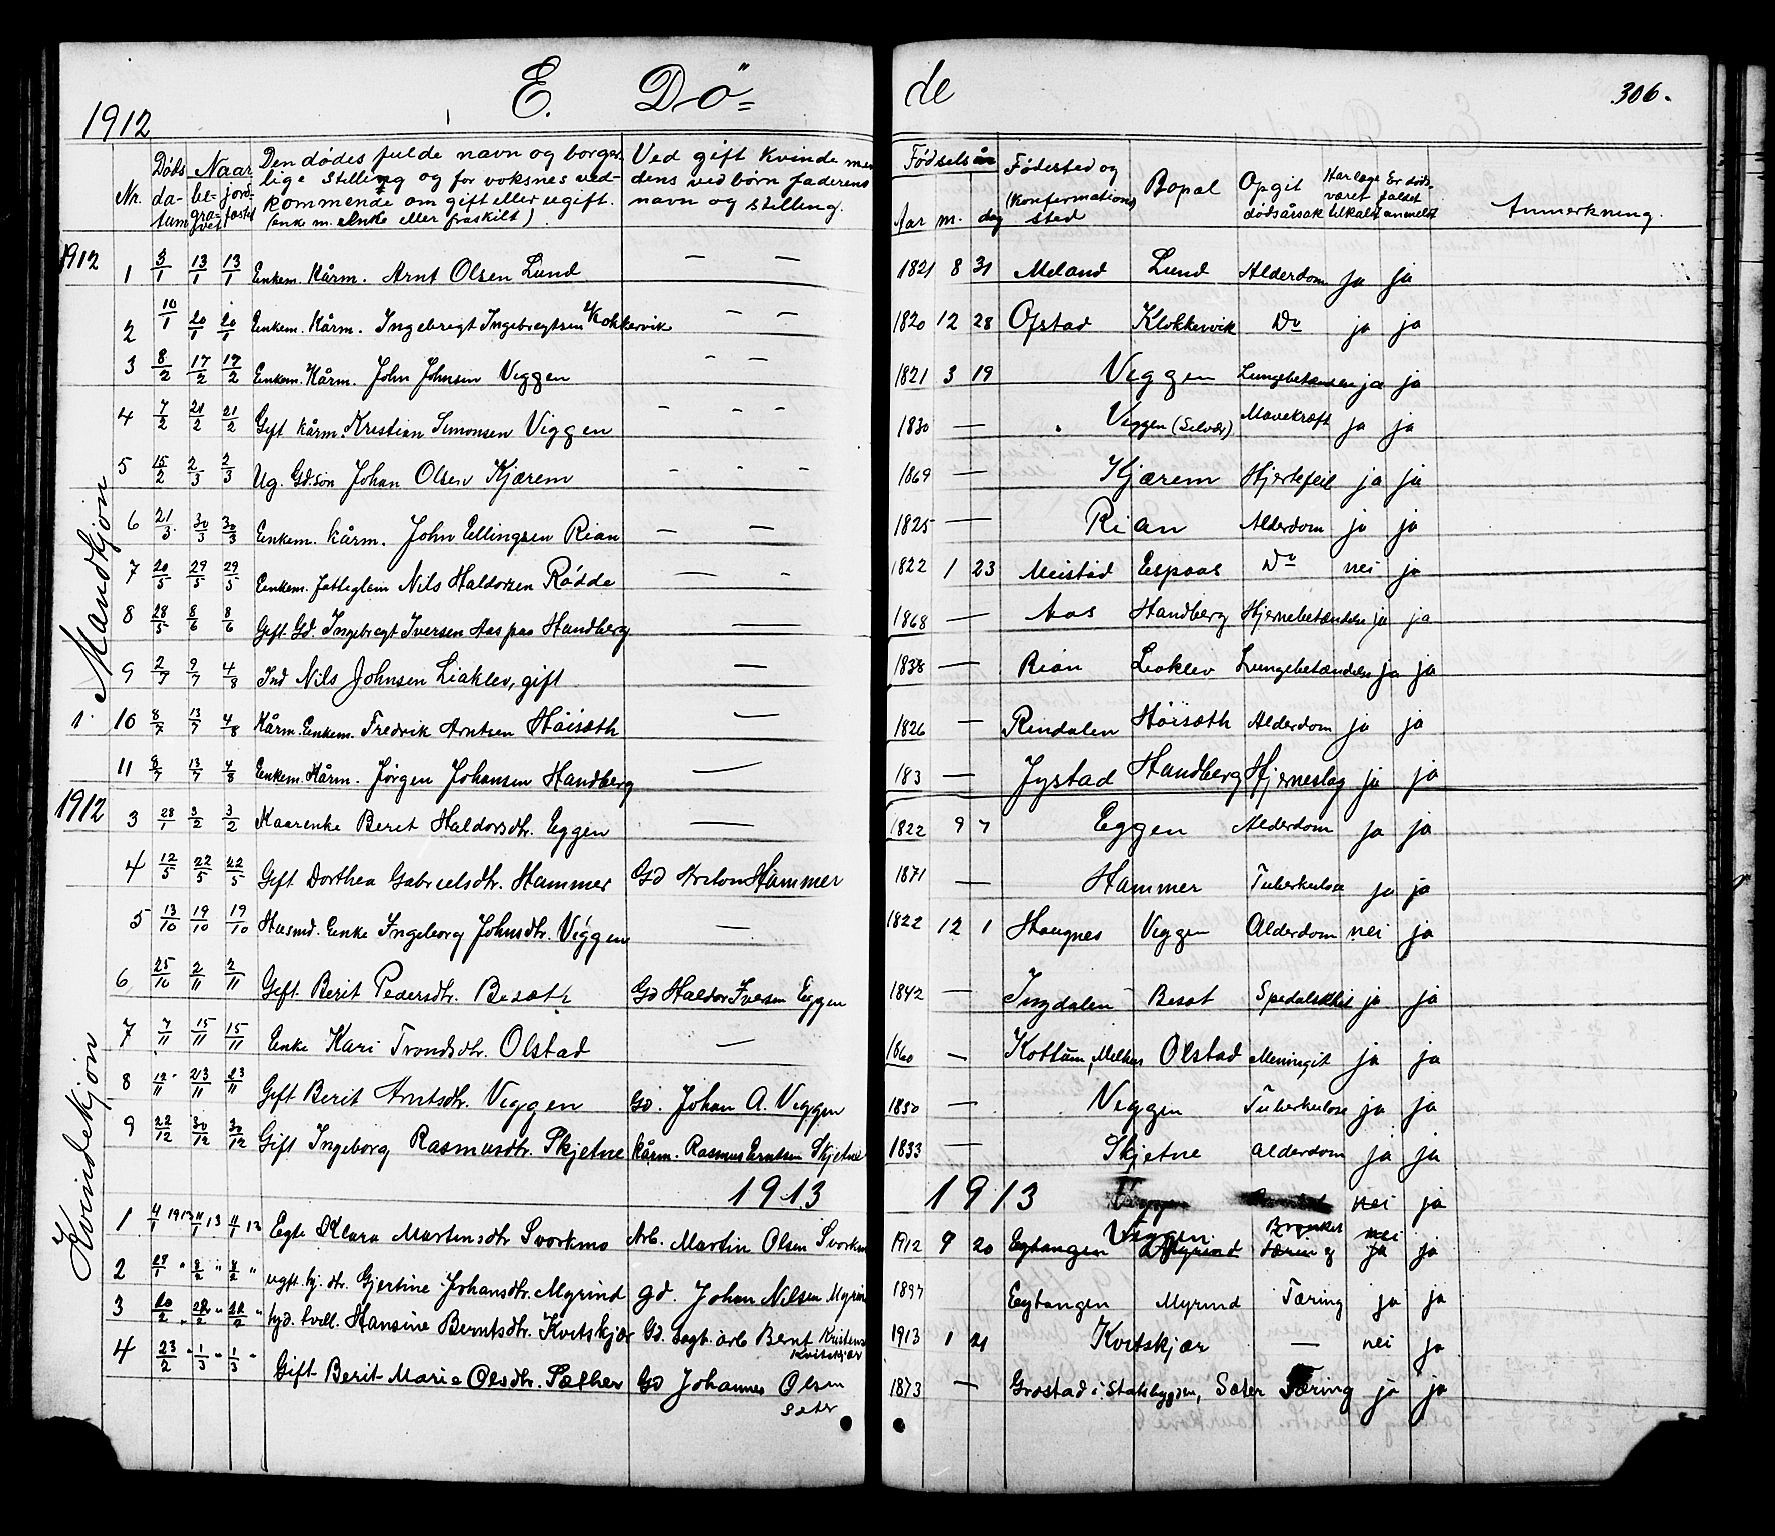 1912 E. Dö= de 306.
Nr. Döds datum Naar begravet jordfæstet Den dödes fulde navn og borgerlige stilling og for voksnes vedkommende om gift eller ugift. (enkem. enke eller fraskilt) Ved gift kvinde mandens ved börn faderens navn og stilling. Födselsår Aar m. dag Födested og (Konfirmations) sted Bopæl Opgit dödsårsak Har læge været tilkaldt Er döds-faldet anmeldt Anmerkning.
Mandkjön
1912 1 3/1 13/1 13/1 Enkem. Kårm. Arnt Olsen Lund — — 1821 8 31 Meland Lund Alderdom ja ja
2 10/1 20/1 20/1 Enkem. Kårm. Ingebrigt Ingebrigtsen Klokkervik — — 1820 12 28 Ofstad Klokkervik Do ja ja
3 8/2 17/2 17/2 Enkem. Kårm. John Johnsen Viggen — — 1821 3 19 Viggen Lungebetændelse ja ja
4 7/2 21/2 21/2 Gift kårm. Kristian Simonsen Viggen — — — 1830 — Viggen (Selvær) Mavekræft ja ja
5 15/2 2/3 2/3 Ug. Gd.sön Johan Olsen Kjærem — — — 1869 — Kjærem Hjertefeil ja ja
6 21/3 30/3 30/3 Enkem. kårm. John Ellingsen Rian — — 1825 — Rian Alderdom ja ja
7 20/5 29/5 29/5 Enkem. Fattiglem Nils Haldorsen Rödde — - 1822 1 23 Meistad Espaas Do nei ja
8 28/5 8/6 8/6 Gift Gd. Ingebrigt Iversen Aaspas Handberg — 1868 — Aas Handberg Hjernebetændelse ja ja
9 2/7 9/7 4/8 Ind Nils Johnsen Liaklev, gift — 1838 — Rian Liaklev Lungebetændelse ja ja
1. 10 8/7 13/7 4/8 Kårm. Enkem. Fredrik Arntsen Höisæth — 1826 — Rindalen Höisæth Alderdom ja ja
11 8/7 13/7 4/8 Enkem. Kårm. Jörgen Johansen Handberg — 183 — Jystad Handberg Hjerneslag ja ja
Kvindekjön
1912 3 28/1 3/2 3/2 Kaarenke Beret Haldorsdtr. Eggen — 1822 9 7 Eggen Alderdom ja ja
4 12/5 22/5 22/5 Gift Dorthea Gabrielsdtr. Hammer Gd Anton Hammer 1871 — Hammer Tuberkulose ja ja
5 13/10 19/10 19/10 Husmd. Enke Ingeborg Johnsdtr. Viggen — 1822 12 1 Haugnes Viggen Alderdom nei ja
6 25/10 2/11 2/11 Gift Berit Pedersdtr. Besæth Gd Haldor Iversen Eggen 1842 — Ingdalen Besæt Spedalskhet ja ja
7 7/11 15/11 15/11 Enke Kari Trondsdtr. Olstad — 1860 — Kottum, Melhus Olstad Meningit ja ja
8 12/11 23/11 23/11 Gift Berit Arntsdtr. Viggen Gd. Johan A. Viggen 1850 — Viggen Tuberkulose ja ja
9 22/12 30/12 30/12 Gift Ingeborg Rasmusdtr. Skjetne kårm. Rasmus Erntsen Skjetne 1833 — Skjetne Alderdom ja ja
1913 1913 Viggen nei ja
1 4/1 1913 11/1 13 11/1 13 Egte Klara Martinsdtr Svorkmo Arb. Martin Olsen Svorkmo 1912 9 20 Eytangen Viggen Myrind Bronkit Tæring nei ja ja
2 28/1 " 8/2 " 8/2 " ugft. hj. dtr. Gjertine Johansdtr. Myrind gd. Johan Nilsen Myrind 1897 Eytangen Myrind Tæring ja ja
3 20/2 " 22/2 " 22/2 " hjd. tvill. Hansine Berntsdtr. Kvitskjær Gd. dagl. arb Bernt Kristensen Kvitskjær 1913 1 21 Kvitskjær — nei ja
4 23/2 " 1/3 " 1/3 " Gift Berit Marie Olsdtr. Sæther Gd Johannes Olsen Sæter 1873 — Grostad i Statsbygden, Sæter Tæring ja ja